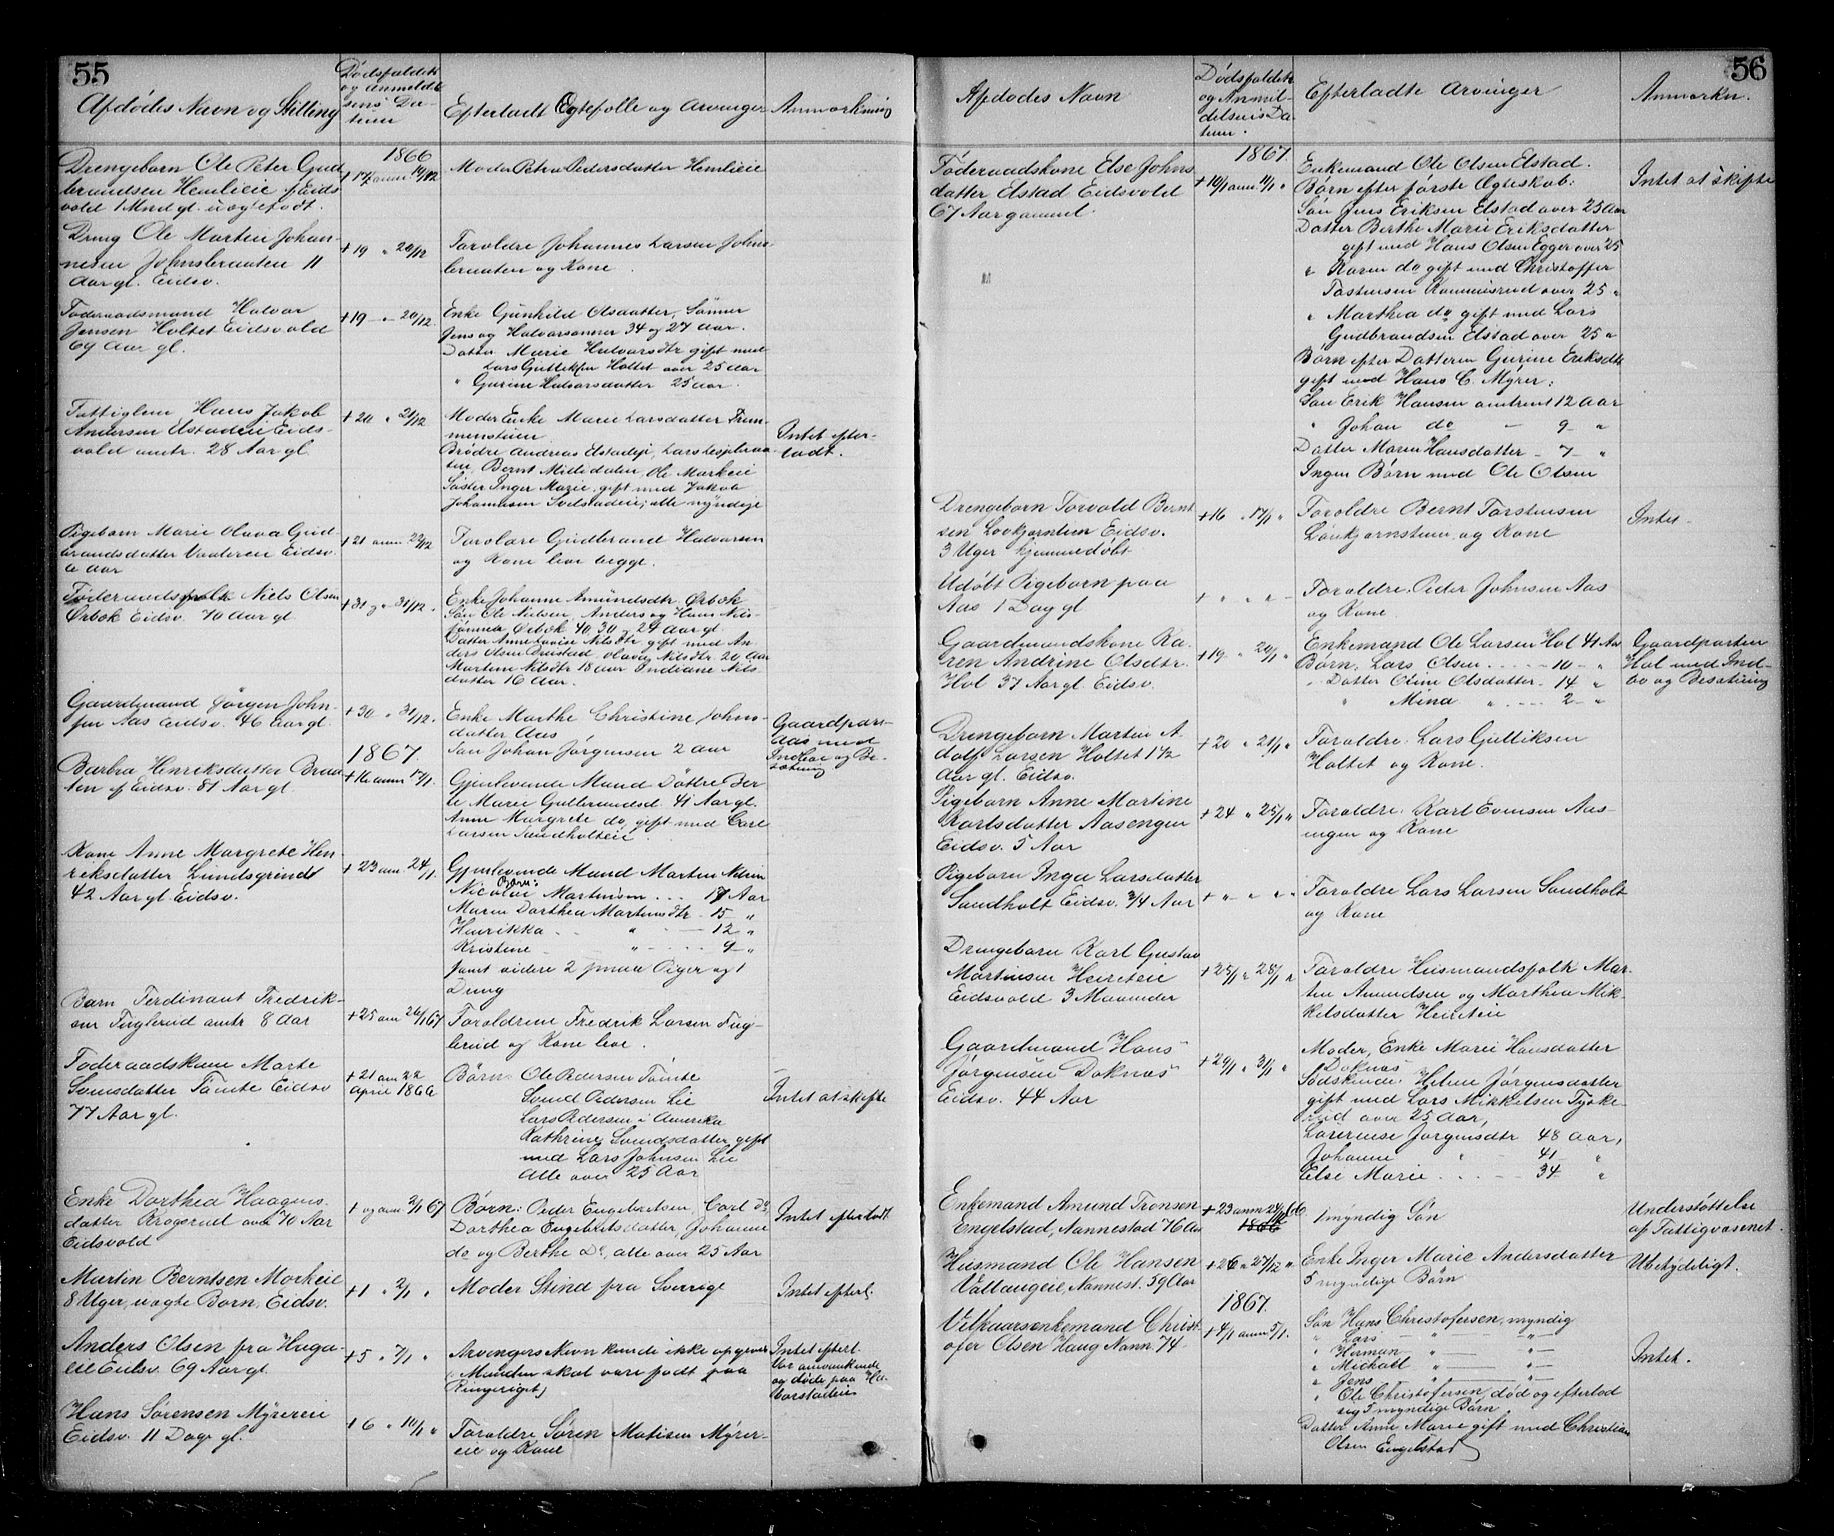 55
Afdødes Navn og Stilling
Dødsfaldets
og Anmeldel-
sens Da-
tum
Efterladt Egtefolle og Arvinger
Anmærkning
1866
Drengebarn Ole Peter Gud
brandsen Hemlieie f Eids
vold 1 Mnd gl. uægtefødt.
Moder Petra Pedersdatter Hemlieie
Dreng Ole Martin Johan-
nesen Johnsbraaten 11
Aar gl. Eidsv.
+19 " 20/12
Foroldre Johannes Larsen Johns
braaten og Kone.
Føderaadsmand Halvor
Jensen Holtet Eidsvold
69 Aar gl.
+19 - " 20/12
Enke Gunhild Olsdatter, Sønner
Jens og Halvor 34 og 27 Aar.
Datter Marie Halvorsdtr gift med
Lars Gulliksen Holtet over 25 Aar
" Gurine Halvorsdatter 25 Aar.
Fattiglem Hans Jakob
Andersen Elstadeie Eids-
vold omtr. 28 Aar gl.
+20 " 21/12
Moder Enke Marie Larsdatter
Brødre Andreas Elstadeie, Lars
Bernt Mididalen, Ole Mørkeie
Søster Inger Marie, gift med Jakob
Johannesen; alle myndige
Intet efter-
ladt.
Pigebarn Marie Olava Gud
brandsdatter Eidsv.
Aar
+21 anm 22/12
Foroldre Gudbrand Halvorsen
og Kone lever begge.
Føderaadsfolk Niels Olsen
Ørbek Eidsv. 70 Aar gl
+31 " 31/12
Enke Johanne Amundsdtr. Ørbek
Søn Ole Nielsen, Anders og Hans Niel-
sønner Ørbek 40 30 - 24 Aar gl
Datter Anne Lovise Nilsdtr gift med An-
ders Olsen, Olava Nilsdtr 20 Aar
Martine Nilsdtr 18 Aar Indiane Nils-
datter 16 Aar.
Gaardmand Jørgen John-
sen Aas Eidsv. 46 Aar gl.
+30 " 31/12.
Enke Marthe Christine Johns-
datter Aas
Søn Johan Jørgensen 2 Aar
Gaardpart
Aas med
Indboe og Be-
sætning
1867.
Barbra Henriksdatter Braa
ten af Eidsv. 81 Aar gl.
+16 anm 17/1.
Gjenlevende Mand Døttre Ber-
te Marie 41 Aar gl.
Anne Margrete do, gift med Carl
Larsen Sandholteie.
Kone Anne Margrete Hen
riksdatter Lundsgrind
42 Aar gl. Eidsv.
+23 anm 24/1.
Gjenlevende Mand Morten Nilsen
Børn:
Nicolai Martinsen . . . 17 Aar
Maren Dorthea Martinsdtr - 15 "
Henrikka - - " - - 12 "
Kristine - " - - - 9 "
samt videre 2 smaa Piger og 1
Dreng
Barn Ferdinant Fredrik-
sen Fuglerud omtr 8 Aar
+25 anm 26/1 67
Foroldrene Fredrik Larsen Fug-
lerud og Kone lever.
Føderaadskone Marte
Svensdatter Tømte Eidsv
77 Aar gl.
+21 am 22
April 1866
Børn: Ole Pedersen Tømte
Svend Pedersen Lie
Lars Pedersen i Amerika
Kathrine Svendsdatter gift
med Lars Johnsen Lie
Alle over 25 Aar
Intet at skifte
Enke Dorthea Haagens
datter Krogsrud over 70 Aar
Eidsvold
+ og anm 2/1 67
Børn: Peder Engebretsen, Carl do
Dorthea Engebretsdatter, Johanne
do og Berthe Do, alle over 25 Aar
Intet efterladt
Martin Berntsen Mørkeie
8 Uger, uægte Barn, Eidsv.
+1 " 2/1 "
Moder Stind fra Sverrige
Intet efterl.
Anders Olsen fra Haga-
eie Eidsv. 69 Aar gl.
+5 " 7/1 "
Arvingers Navn kunde ikke opgives
(Manden skal være født paa
Ringeriget)
Intet efterl
Var omvankende
og døde paa
Hans Sørensen Myrereie
Eidsv. 11 Dage gl.
+6 " 10/1 "
Foroldre Søren Matisen Myrer-
eie og Kone
56
Afdødes Navn
Dødsfaldets
og Anmel-
delsens Da-
tum.
Efterladte Arvinger
Anmærkn.
1867.
Føderaadskone Else Johns
datter Elstad Eidsvold
67 Aar gammel.
+10/1 anm 11/1 "
Enkemand Ole Olsen Elstad.
Børn efter første Ægteskab:
Søn Jens Eriksen Elstad over 25 Aar
Datter Berthe Marie Eriksdatter
gift med Hans Olsen Egger over 25
" Karen do gift med Christoffer
Tostensen over 25 "
" Marthea do gift med Lars
Gudbrandsen Elstad over 25 "
Børn efter Datteren Gurine Eriksdtr
gift med Hans C. Myrer:
Søn Erik Hansen omtrent 12 Aar
" Johan do - 9 "
Datter Maren Hansdatter - 7 - "
Ingen Børn med Ole Olsen
Intet at skifte
Drengebarn Torvald Bernt
sen Eidsv.
3 Uger hjemmedøbt
+16 " 17/1 "
Foroldre Bernt Torstensen
og Kone
Intet
Udøbt Pigebarn paa
Aas 1 Dag gl
+ " " " -
Foroldre Peder Johnsen Aas
og Kone
Gaardmandskone Ka-
ren Andrine Olsdtr.
Hol 37 Aar gl. Eidsv.
+19 - " 20/1 "
Enkemand Ole Larsen Hol 41 Aar
Børn, Lars Olsen . . . . . 10 - "
" Datter Oline Olsdatter - 14 "
" Mina " . - - - 2 - "
Gaardparten
Hol med Ind-
bo og Besætning
Drengebarn Martin A-
dolf Larsen Holtet 1 1/2
Aar gl. Eidsv.
+20 " 21/1 "
Foroldre Lars Gulliksen
Holtet og Kone.
Pigebarn Anne Martine
Karlsdatter Aasengen
Eidsv. 5 Aar
+24 " 25/1 "
Foroldre: Karl Evensen Aas-
engen og Kone
Pigebarn Inga Larsdatter
Sandholt Eidsv. 3/4 Aar
+ " - " " "
Foroldre Lars Larsen Sandholt
og Kone
Drengebarn Karl Gustav
Martinsen
Eidsvold 3 Maaneder
+25/1 " 28/1 "
Foroldre Husmandsfolk Mar-
tin Amundsen og Marthea Mik-
kelsdatter
Gaardmand Hans
Jørgensen Doknæs
Eidsv. 44 Aar
+29/1 " 31/1 "
Moder, Enke Marie Hansdatter
Doknæs
Sødskende Helene Jørgensdatter
gift med Lars Mikkelsen Tyske-
rud over 25 Aar,
Lorense Jørgensdtr 48 Aar,
Johanne " - 41 - "
Else Marie . - . - - 34 "
Enkemand Amund Tronsen
Engelstad, Nannestad 76 Aar
1 myndig Søn
Understøttelse
af Fattigvæsenet.
Husmand Ole Hansen
Nannest. 59 Aar
+26 " 27/12 "
Enke Inger Marie Andersdatter
5 myndige Børn
Ubetydeligt.
1867.
Velkaarsenkemand Christ-
ofer Olsen Haug Nann 74
+4/1 anm 5/1.
Søn Hans Christofersen, myndig
" Lars - " - - " -
" Herman - " - - " -
" Michael " - - " -
" Jens " - - " -
" Ole Christofersen, død og efterlod
sig 5 myndige Børn
Datter Anne Marie gift med Christian
Olsen Engelstad
Intet.